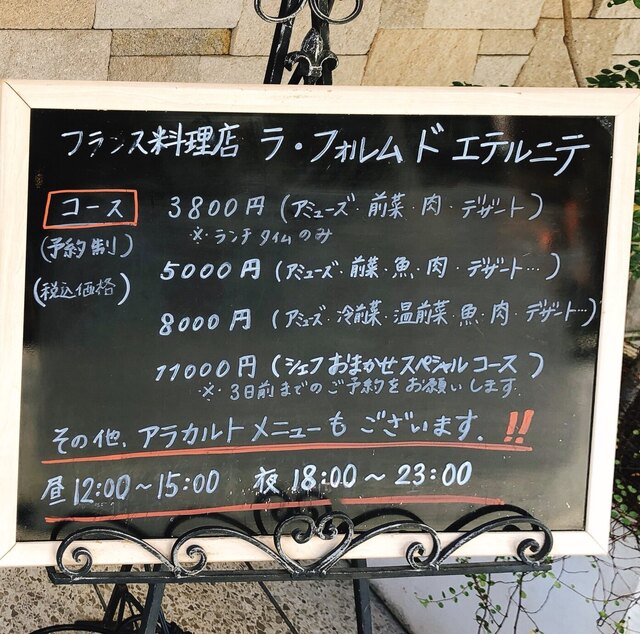 フランス料理店 ラ・フォルム ド エテルニテ
コース 3800円 (アミューズ・前菜・肉・デザート)
(予約制) ※ランチタイムのみ
5000円 (アミューズ・前菜・魚・肉・デザート…)
(税込価格)
8000円 (アミューズ・冷前菜・温前菜・魚・肉・デザート…)
11000円 (シェフおまかせスペシャルコース)
※3日前までのご予約をお願いします。
その他、アラカルトメニューもございます。!!
昼12:00~15:00 夜18:00~23:00